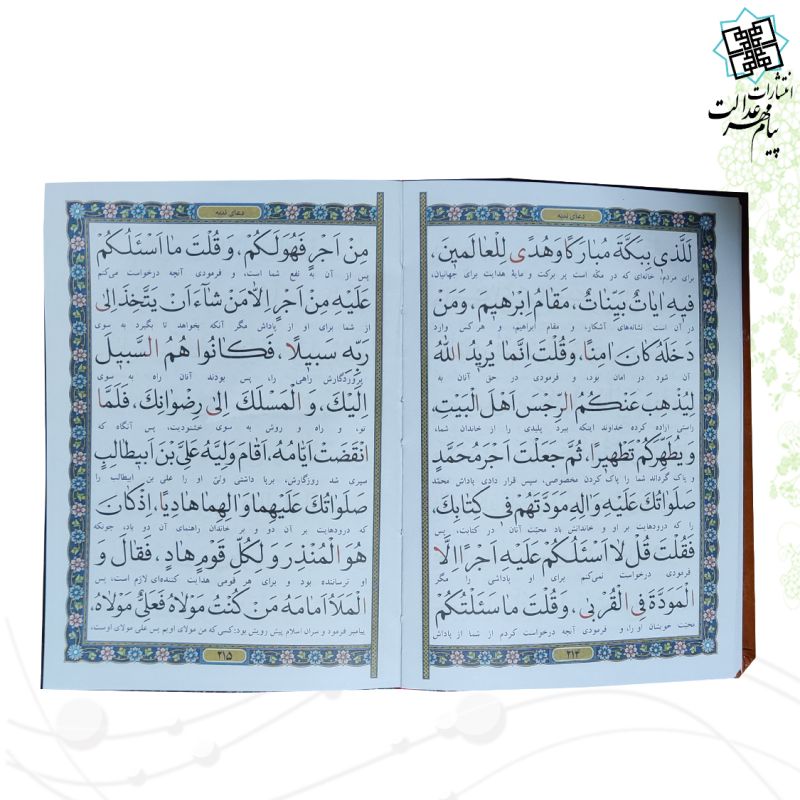 انتشارات
پیام مهر عدالت
دعای ندبه
لَلَّذی بِبَکَّةَ مُبارَکًا وَ هُدًی لِلْعالَمینَ،
برای مردم؛ خانه‌ای که در مکّه است پر برکت و مایهٔ هدایت برای جهانیان،
فیهِ ایاتٌ بَیِّناتٌ، مَقامُ اِبْرهیمَ، وَمَنْ
در آن است نشانه‌های آشکار، و مقام ابراهیم، و هر کس وارد
دَخَلَهُ کانَ امِنًا، وَ قُلْتَ اِنَّما یُریدُ اللّٰهُ
آن شود در امان بود، و فرمودی در حق آنان به
لِیُذْهِبَ عَنْکُمُ الرِّجْسَ اَهْلَ الْبَیْتِ،
راستی اراده کرده خداوند اینکه ببرد پلیدی را از خاندان شما،
وَ یُطَهِّرَکُمْ تَطْهیرًا، ثُمَّ جَعَلْتَ اَجْرَ مُحَمَّدٍ
و پاک گرداند شما را پاک کردن مخصوصی، سپس قرار دادی پاداش محمّد
صَلَواتُکَ عَلَیْهِ وَ الِهِ مَوَدَّتَهُمْ فی کِتابِکَ،
را که درودهایت بر او و خاندانش باد محبّت آنان در کتابت، پس
فَقُلْتَ قُلْ لا اَسْئَلُکُمْ عَلَیْهِ اَجْرًا اِلَّا
فرمودی درخواست نمی‌کنم برای او پاداشی را مگر
الْمَوَدَّةَ فِی الْقُرْبی، وَ قُلْتَ ما سَئَلْتُکُمْ
محبّت خویشان او را، و فرمودی آنچه درخواست کردم از شما از پاداش
۲۱۴
دعای ندبه
مِنْ اَجْرٍ فَهُوَ لَکُمْ، وَ قُلْتَ ما اَسْئَلُکُمْ
پس از آن به نفع شما است، و فرمودی آنچه درخواست می‌کنم
عَلَیْهِ مِنْ اَجْرٍ اِلّا مَنْ شآءَ اَنْ یَتَّخِذَ اِلی
از شما برای او از پاداش مگر آنکه بخواهد تا بگیرد به سوی
رَبِّهِ سَبیلًا، فَکانُوا هُمُ السَّبیلَ
پروردگارش راهی را، پس بودند آنان راه به سوی
اِلَیْکَ، وَ الْمَسْلَکَ اِلی رِضْوانِکَ، فَلَمَّا
تو، و راه و روش به سوی خشنودیت، پس آنگاه که
انْقَضَتْ اَیّامُهُ، اَقامَ وَلِیَّهُ عَلِیَّ بْنَ اَبیطالِبٍ
سپری شد روزگارش، برپا داشتی ولیّ او را علی بن ابیطالب را
صَلَواتُکَ عَلَیْهِما وَ الِهِما هادِیًا، اِذْ کانَ
که درودهایت بر آن دو و بر خاندان راهنمای آن دو باد، چونکه
هُوَ الْمُنْذِرَ وَ لِکُلِّ قَوْمٍ هادٍ، فَقالَ وَ
او ترساننده بود و برای هر قومی هدایت کننده‌ای لازم است، پس
الْمَلَأُ اَمامَهُ مَنْ کُنْتُ مَوْلاهُ فَعَلِیٌّ مَوْلاهُ،
پیامبر فرمود و سران اسلام پیش رویش بود: کسی که من مولای اویم پس علی مولای اوست،
۲۱۵